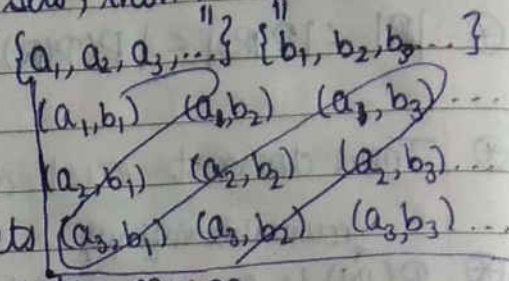 {a₁, a₂, a₃, ...} {b₁, b₂, b₃ ... }
(a₁, b₁) (a₁, b₂) (a₁, b₃) ...
(a₂, b₁) (a₂, b₂) (a₂, b₃) ...
(a₃, b₁) (a₃, b₂) (a₃, b₃) ...